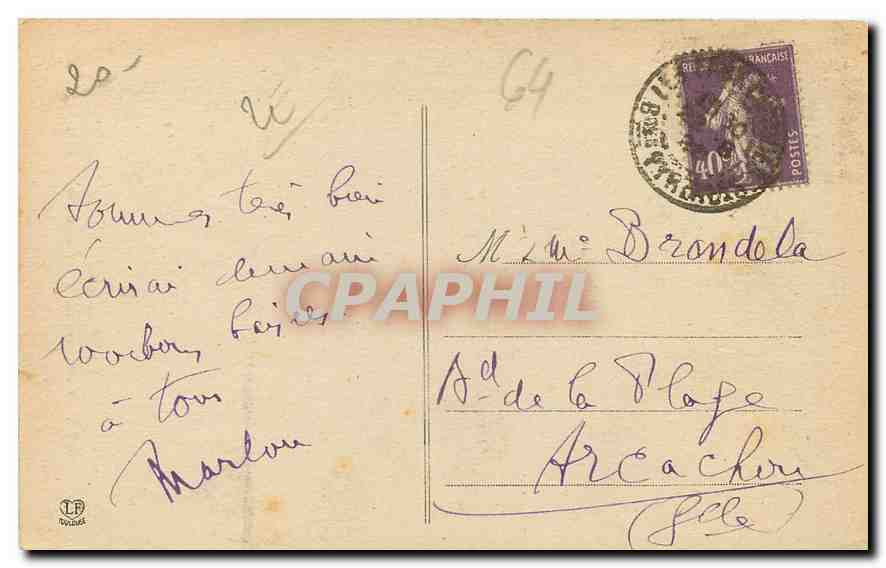 20-
64
REPUBLIQUE FRANÇAISE
40c
POSTES
Sommes très bien
écrirai demain
bons baisers
à tous
M. & Me Brondela
Bd de la Plage
Arcachon
(Gde)
CPAPHIL
LF
TOULOUSE